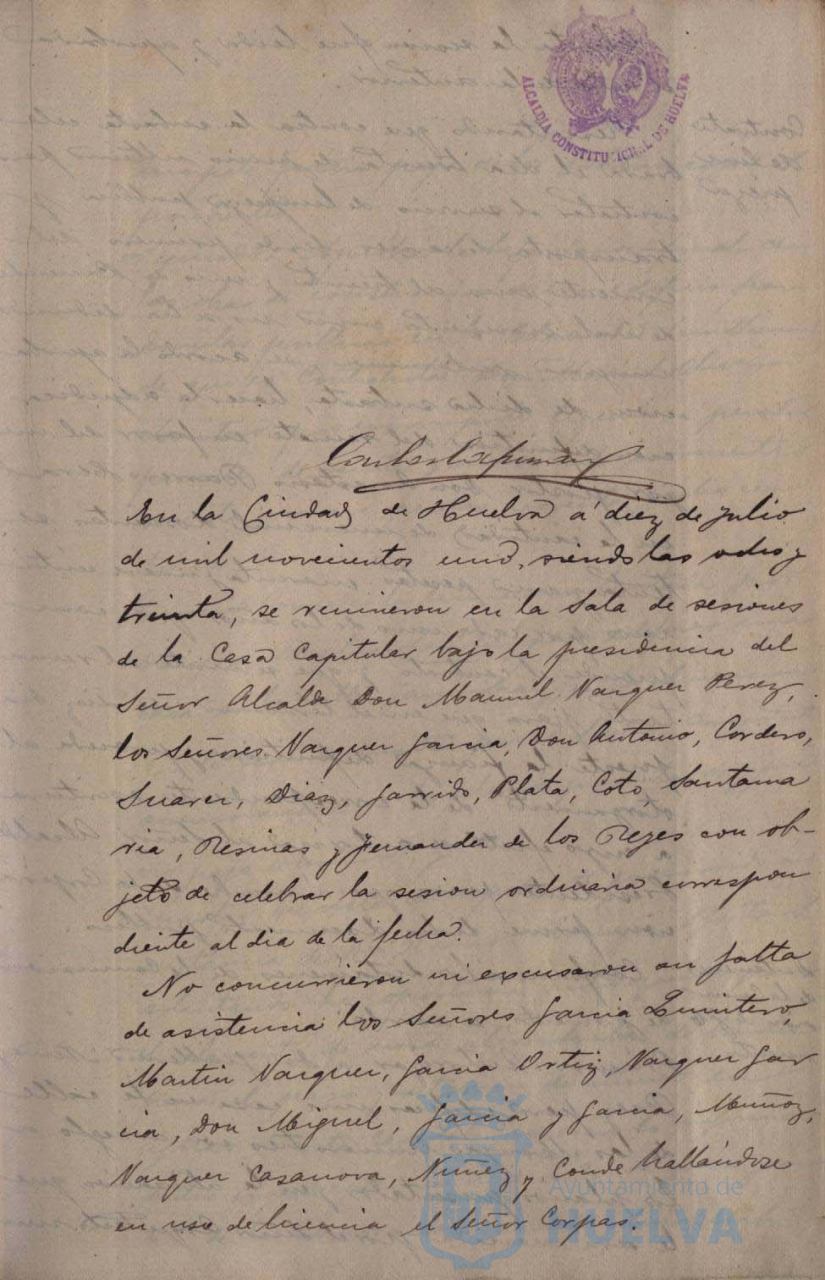 ALCALDIA CONSTITUCIONAL DE HUELVA
En la Ciudad de Huelva á diez de julio
de mil novecientos uno, siendo las ocho y
treinta, se reunieron en la Sala de sesiones
de la Casa Capitular bajo la presidencia del
Señor Alcalde Don Manuel Vazquez Perez,
los Señores Vazquez Garcia, Don Antonio, Cordero,
Suarez, Diaz, Garrido, Plata, Coto, Santama
ria, Resinas y Fernandez de los Reyes con ob-
jeto de celebrar la sesion ordinaria correspon
diente al dia de la fecha.
No concurrieron ni excusaron su falta
de asistencia los Señores Garcia
Martin Vazquez, Garcia Ortiz, Vazquez Gar
cia, Don Miguel, Garcia y Garcia, Muñoz,
Vazquez Casanova, Nuñez y Conde hallándose
en uso de licencia el Señor Corpas.
Ayuntamiento de
HUELVA